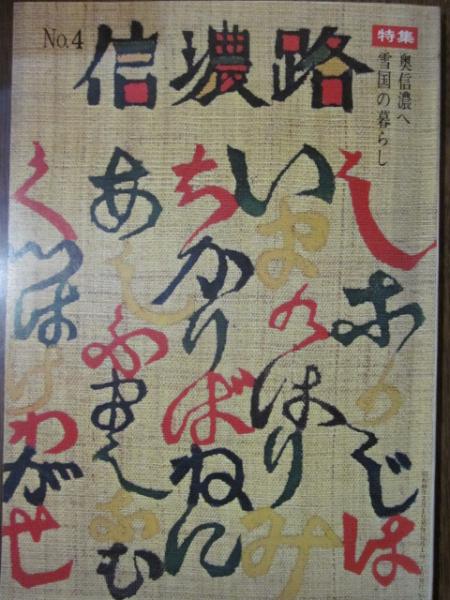 No.4
信濃路
特集
奥信濃へ
雪国の暮らし
しなのぢは
いまのはりみ
ちかりばねに
あしふましなむ
くつはけわがせ